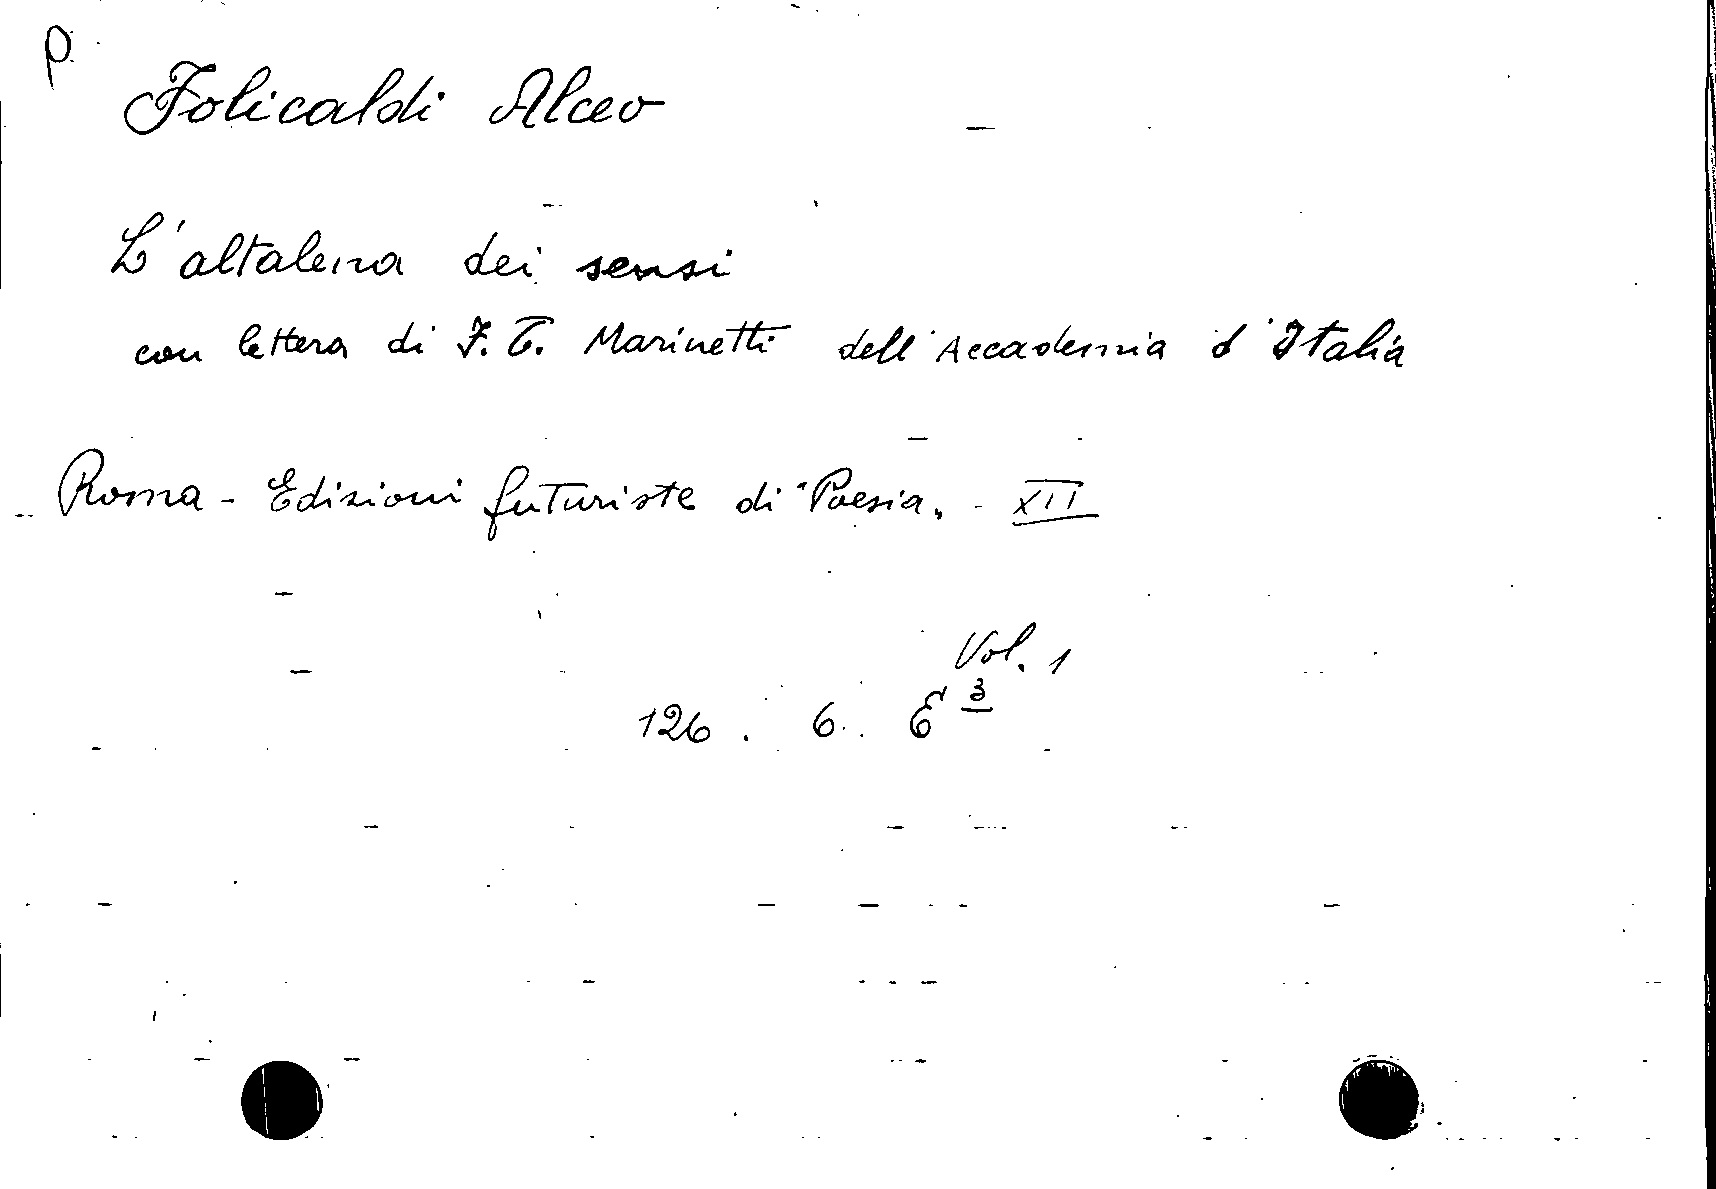 p.
Folicaldi Alceo
L'altalena dei sensi
con lettera di F. T. Marinetti dell'Accademia d'Italia
Roma - Edizioni futuriste di "Poesia„ - XII
Vol. 1
126 . 6 . E 3